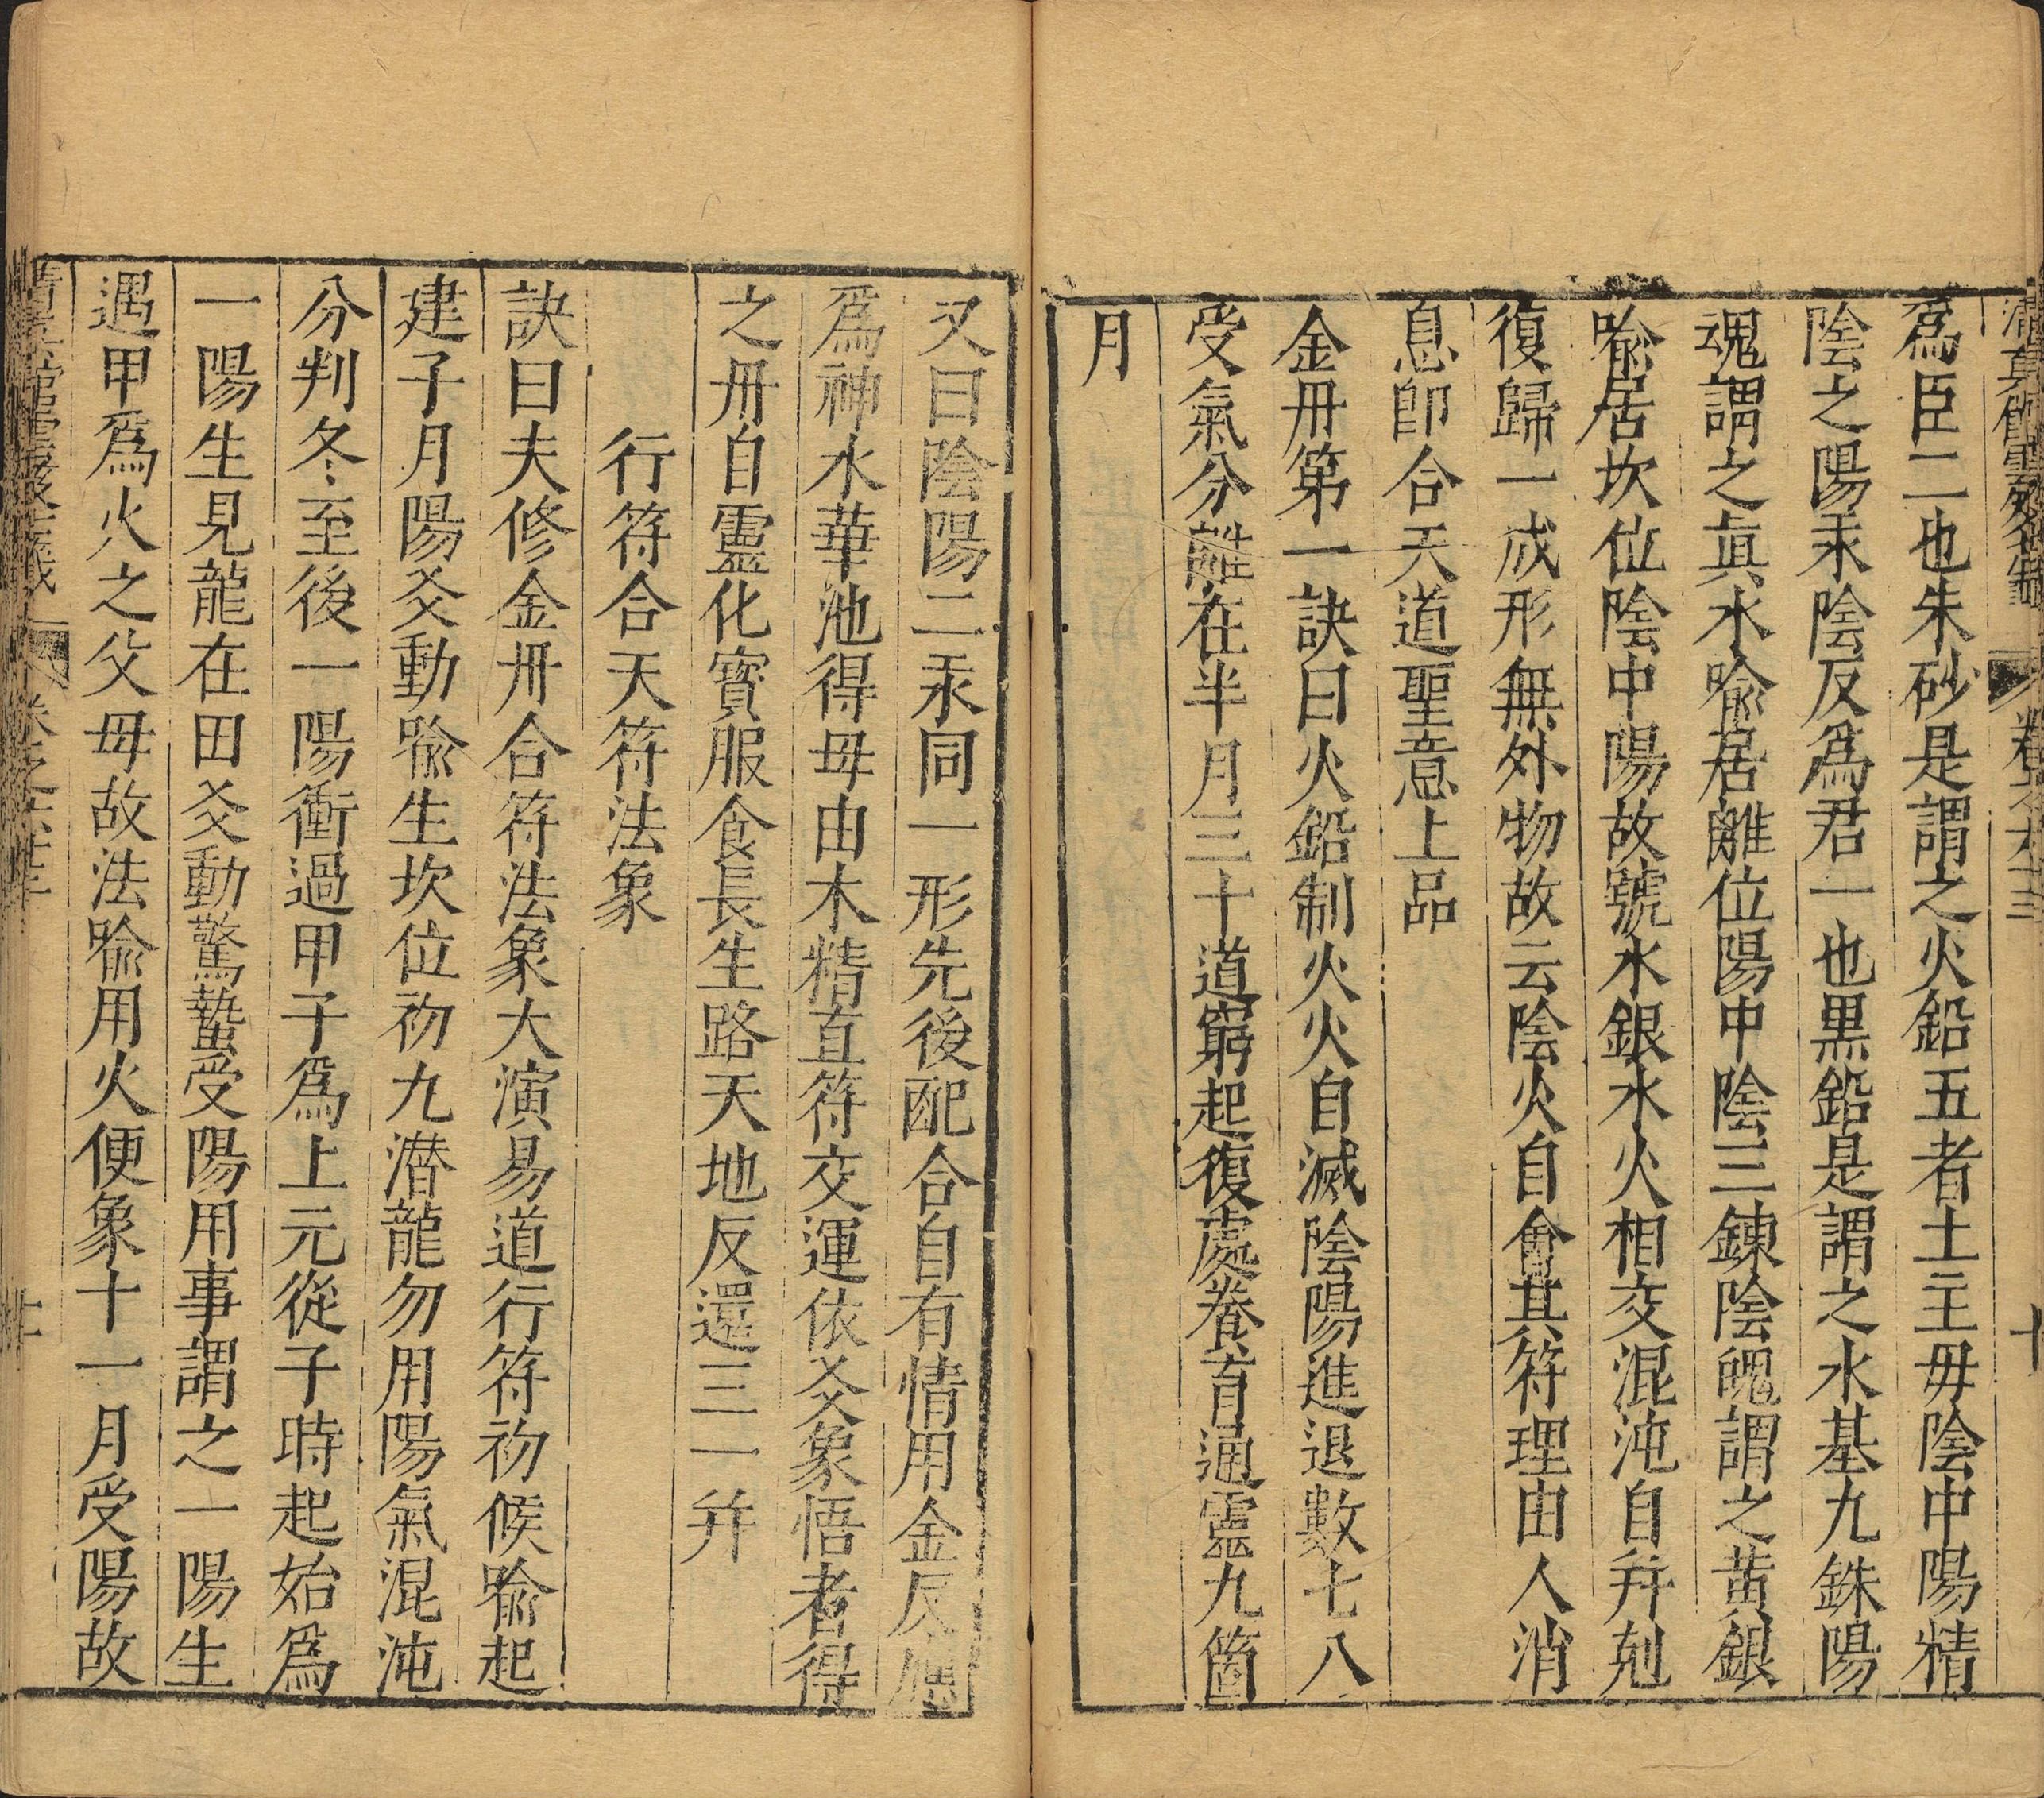 爲臣二也朱砂是謂之火鉛五者土主毋陰中陽精
陰之陽汞陰反爲君一也黒鉛是謂之水基九銖陽
魂謂之眞水喻居離位陽中陰三鍊陰魄謂之黄銀
喻居坎位陰中陽故號水銀水火相交混沌自并剋
復歸一成形無外物故云陰火自會其符理由人消
息即合天道聖意上品
金丹第一訣曰火鉛制火火自滅陰陽進退數七八
受氣分離在半月三十道窮起復處養育通靈九箇
月
又曰陰陽二汞同一形先後配合自有情用金反應
爲神水華池得母由木精直符交運依爻象悟者得
之丹自靈化寳服食長生路天地反還三一并
行符合天符法象
訣曰夫修金丹合符法象大演易道行符初候喻起
建子月陽爻動喻生坎位初九潜龍勿用陽氣混沌
分判冬至後一陽衝過甲子爲上元從子時起始爲
一陽生見龍在田爻動驚蟄受陽用事謂之一陽生
遇甲爲火之父母故法喻用火便象十一月受陽故